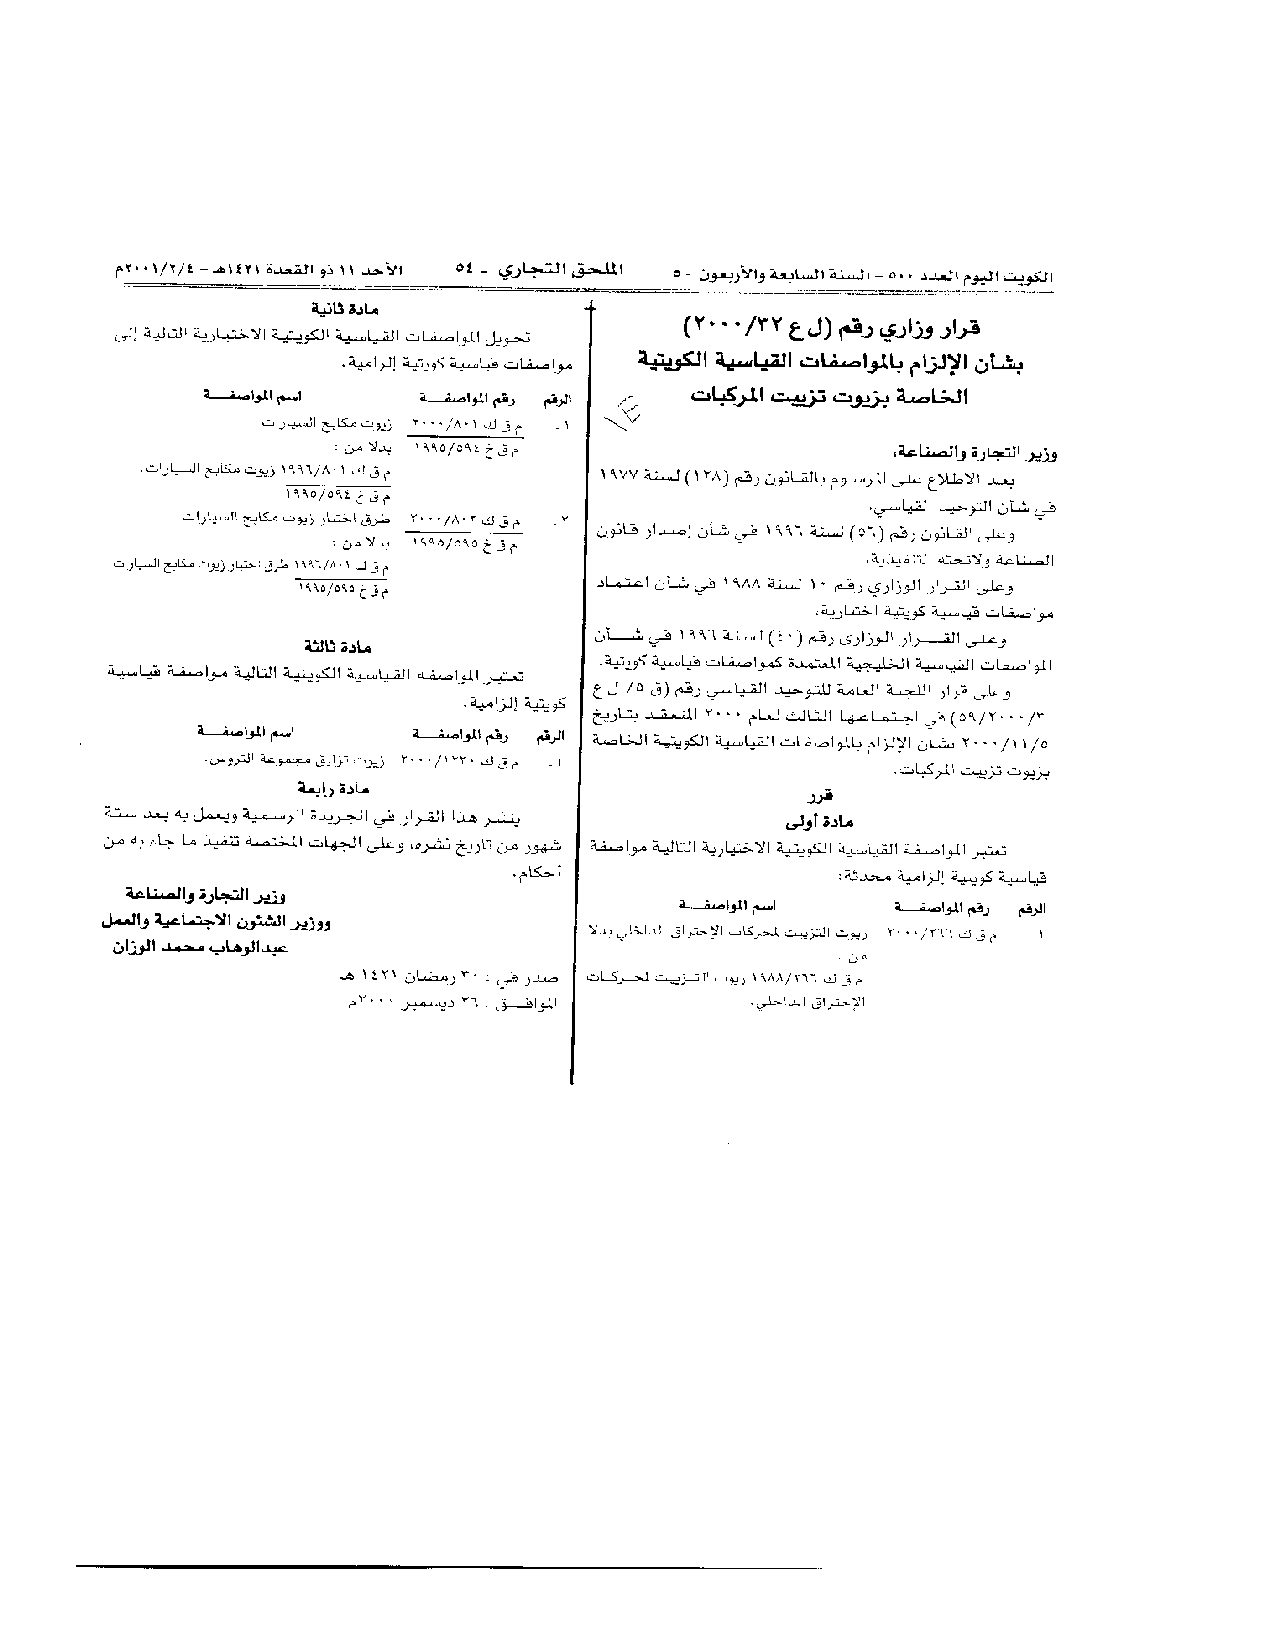 الكويت اليوم العدد ٥٠٠ - السنة السابعة والأربعون - ٥٠
الملحق التجاري - ٥٤
الأحد ١١ ذو القعدة ١٤٢١هـ - ٢٠٠١/٢/٤م
قرار وزاري رقم (ل ع ٢٠٠٠/٣٢)
بشأن الإلزام بالمواصفات القياسية الكويتية
الخاصة بزيوت تزييت المركبات
وزير التجارة والصناعة،
بعد الاطلاع على المرسوم بالقانون رقم (١٢٨) لسنة ١٩٧٧
في شأن التوحيد القياسي.
وعلى القانون رقم (٥٦) لسنة ١٩٩٦ في شأن إصدار قانون
الصناعة ولائحته التنفيذية.
وعلى القرار الوزاري رقم ١٠ لسنة ١٩٨٨ في شأن اعتماد
مواصفات قياسية كويتية اختيارية.
وعلى القـــرار الوزارى رقم (٤٠) لسنة ١٩٩٦ في شـــأن
المواصفات القياسية الخليجية المعتمدة كمواصفات قياسية كويتية.
وعلى قرار اللجنة العامة للتوحيد القياسي رقم (ق ٥/ ل ع
٥٩/٢٠٠٠/٣) في اجتماعها الثالث لعام ٢٠٠٠ المنعقد بتاريخ
٢٠٠٠/١١/٥ بشأن الإلزام بالمواصفات القياسية الكويتية الخاصة
بزيوت تزييت المركبات.
قرر
مادة أولى
تعتبر المواصفة القياسية الكويتية الاختيارية التالية مواصفة
قياسية كويتية إلزامية محدثة:
الرقم رقم المواصفـــة اسم المواصفـــة
١ م ق ك ٢٠٠٠/٢٦٦ زيوت التزييت لمحركات الإحتراق الداخلي بدلا
من :
م ق ك ١٩٨٨/٢٦٦ زيوت التزييت لمحركات
الإحتراق الداخلي.
مادة ثانية
تحويل المواصفات القياسية الكويتية الاختيارية التالية إلى
مواصفات قياسية كويتية إلزامية.
الرقم رقم المواصفـــة اسم المواصفـــة
١ـ م ق ك ٢٠٠٠/٨٠١ زيوت مكابح السيارات
م ق خ ١٩٩٥/٥٩٤ بدلا من :
م ق ك ١٩٩٦/٨٠١ زيوت مكابح السيارات.
م ق خ ١٩٩٥/٥٩٤
٢ـ م ق ك ٢٠٠٠/٨٠٢ طرق اختبار زيوت مكابح السيارات
م ق خ ١٩٩٥/٥٩٥ بدلا من :
م ق ك ١٩٩٦/٨٠١ طرق اختبار زيوت مكابح السيارات
م ق خ ١٩٩٥/٥٩٥
مادة ثالثة
تعتبر المواصفه القياسية الكويتية التالية مواصفة قياسية
كويتية إلزامية.
الرقم رقم المواصفـــة اسم المواصفـــة
١ـ م ق ك ٢٠٠٠/١٢٢٠ زيوت تزليق مجموعة التروس.
مادة رابعة
ينشر هذا القرار في الجريدة الرسمية ويعمل به بعد ستة
شهور من تاريخ نشره، وعلى الجهات المختصة تنفيذ ما جاء به من
أحكام.
وزير التجارة والصناعة
ووزير الشئون الاجتماعية والعمل
عبدالوهاب محمد الوزان
صدر في : ٣٠ رمضان ١٤٢١ هـ
الموافـــق : ٢٦ ديسمبر ٢٠٠٠م